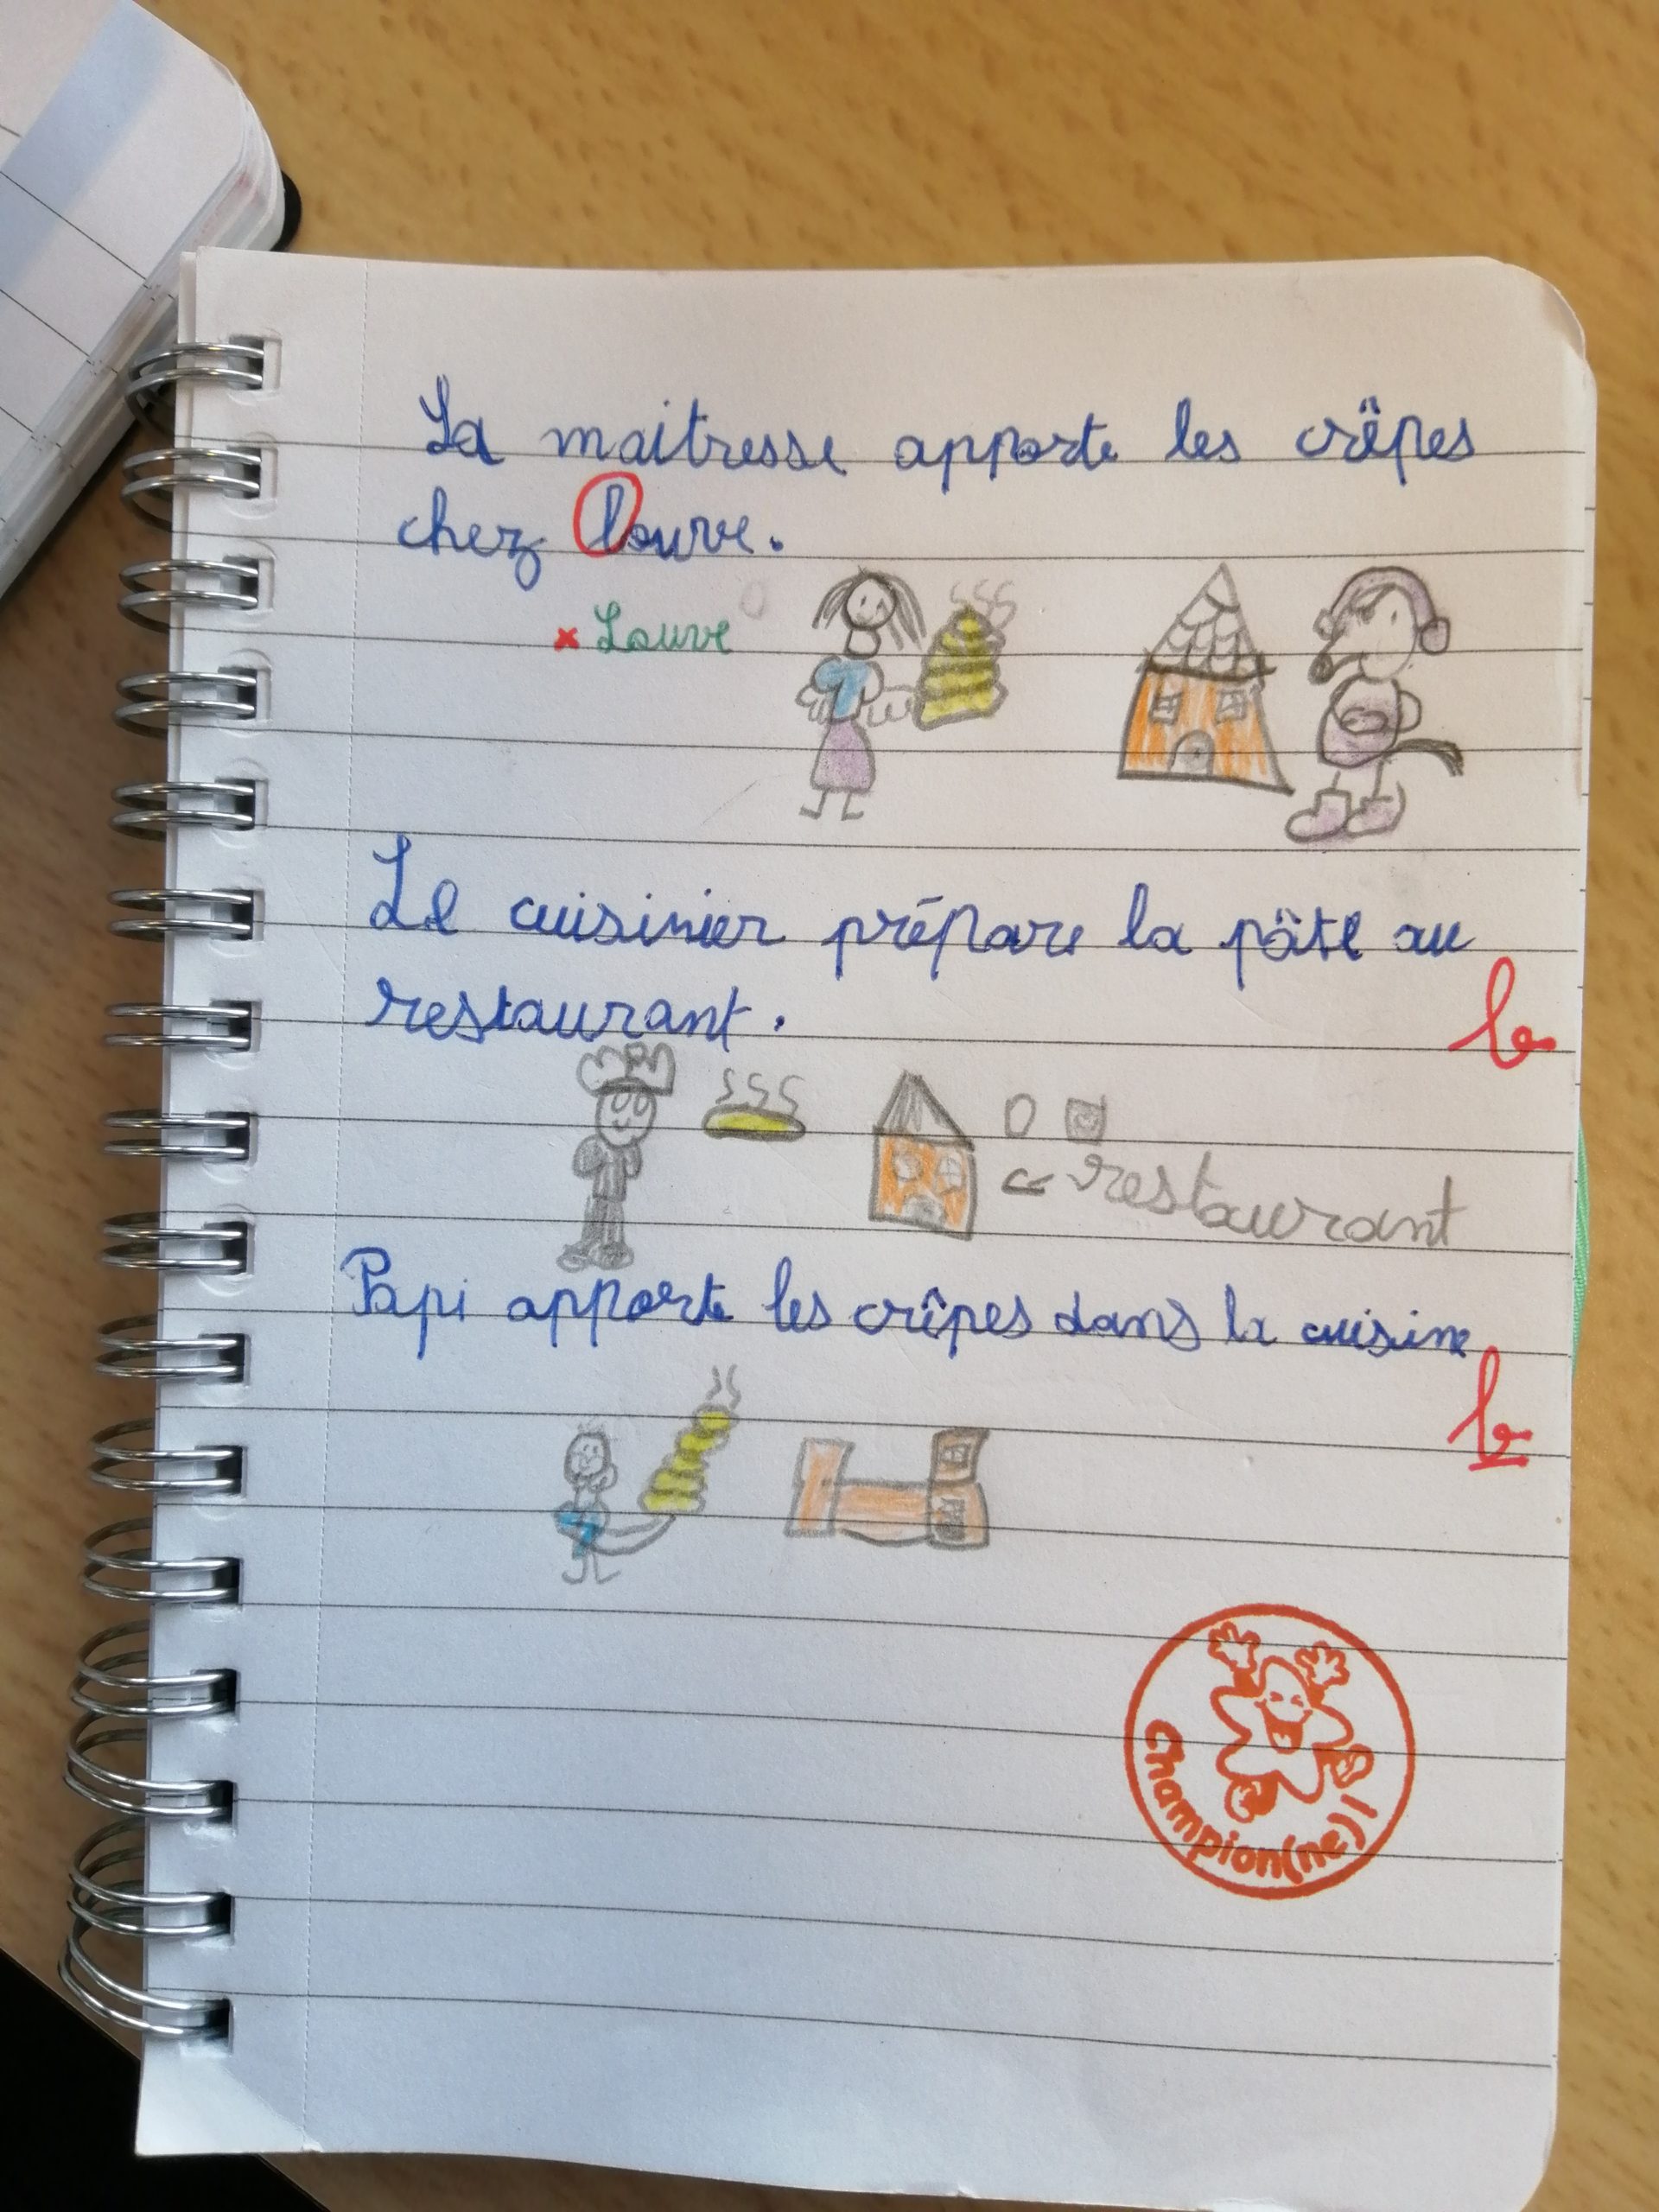 La maitresse apporte les crêpes
chez louve.
x Louve
Le cuisinier prépare la pâte au
restaurant.
b
restaurant
Papi apporte les crêpes dans la cuisine
b
Champion(ne)!